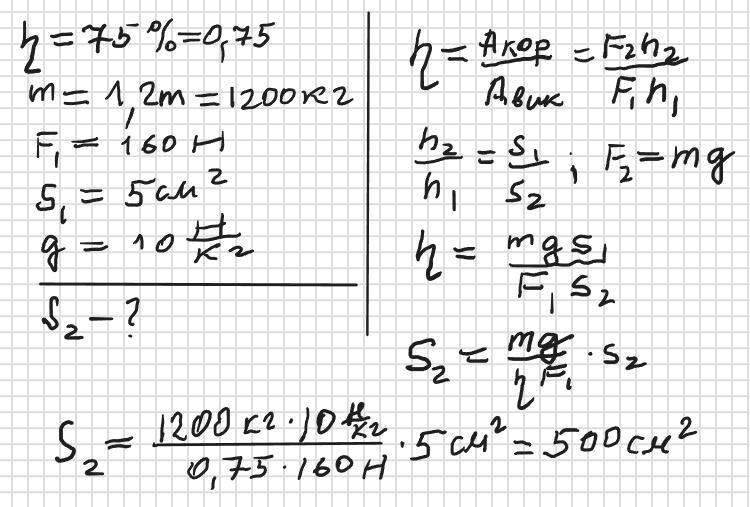 η = 75% = 0,75
m = 1,2т = 1200кг
F₁ = 160 Н
S₁ = 5 см²
g = 10 Н/кг
S₂ – ?
η = Aкор/Aвик = F₂h₂/F₁h₁
h₂/h₁ = S₁/S₂ ; F₂ = mg
η = mgS₁/F₁S₂
S₂ = mg/ηF₁ · S₂
S₂ = 1200кг·10 Н/кг / 0,75·160Н · 5 см² = 500 см²